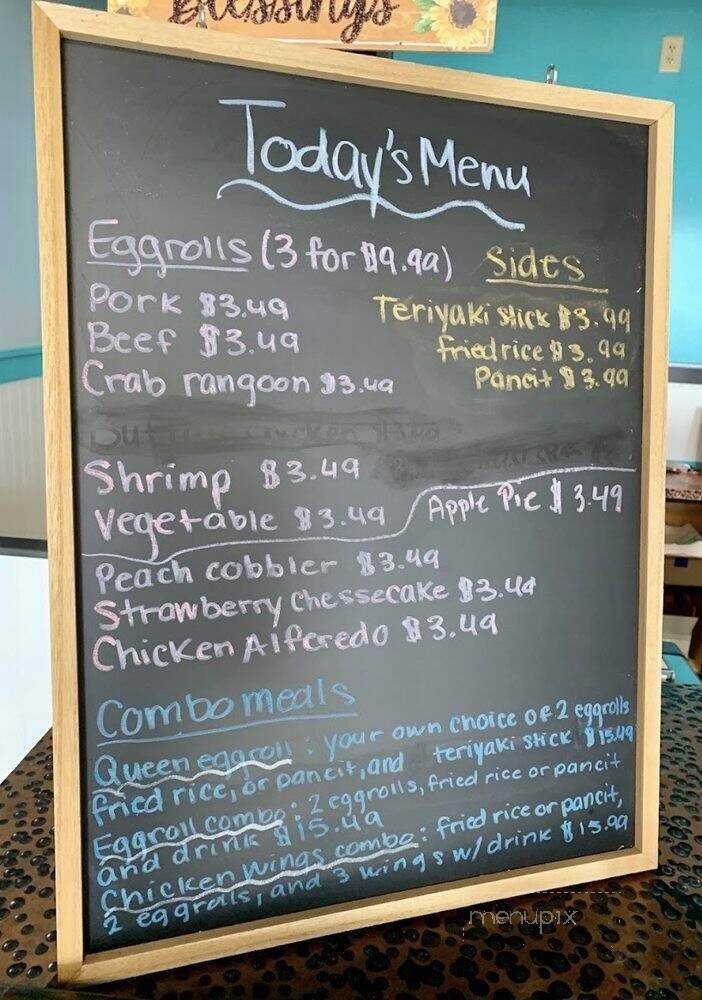 Blessings
Today's Menu
Eggrolls (3 for $9.99)
Pork $3.49
Beef $3.49
Crab rangoon $3.49
Sides
Teriyaki stick $3.99
fried rice $3.99
Pancit $3.99
Shrimp $3.49
Vegetable $3.49
Apple Pie $3.49
Peach cobbler $3.49
Strawberry Chessecake $3.49
Chicken Alferedo $3.49
Combo meals
Queen eggroll: your own choice of 2 eggrolls
fried rice, or pancit, and teriyaki stick $15.49
Eggroll combo: 2 eggrolls, fried rice or pancit
and drink $15.49
Chicken Wings combo: fried rice or pancit,
2 eggrolls, and 3 wings w/ drink $15.99
menupix